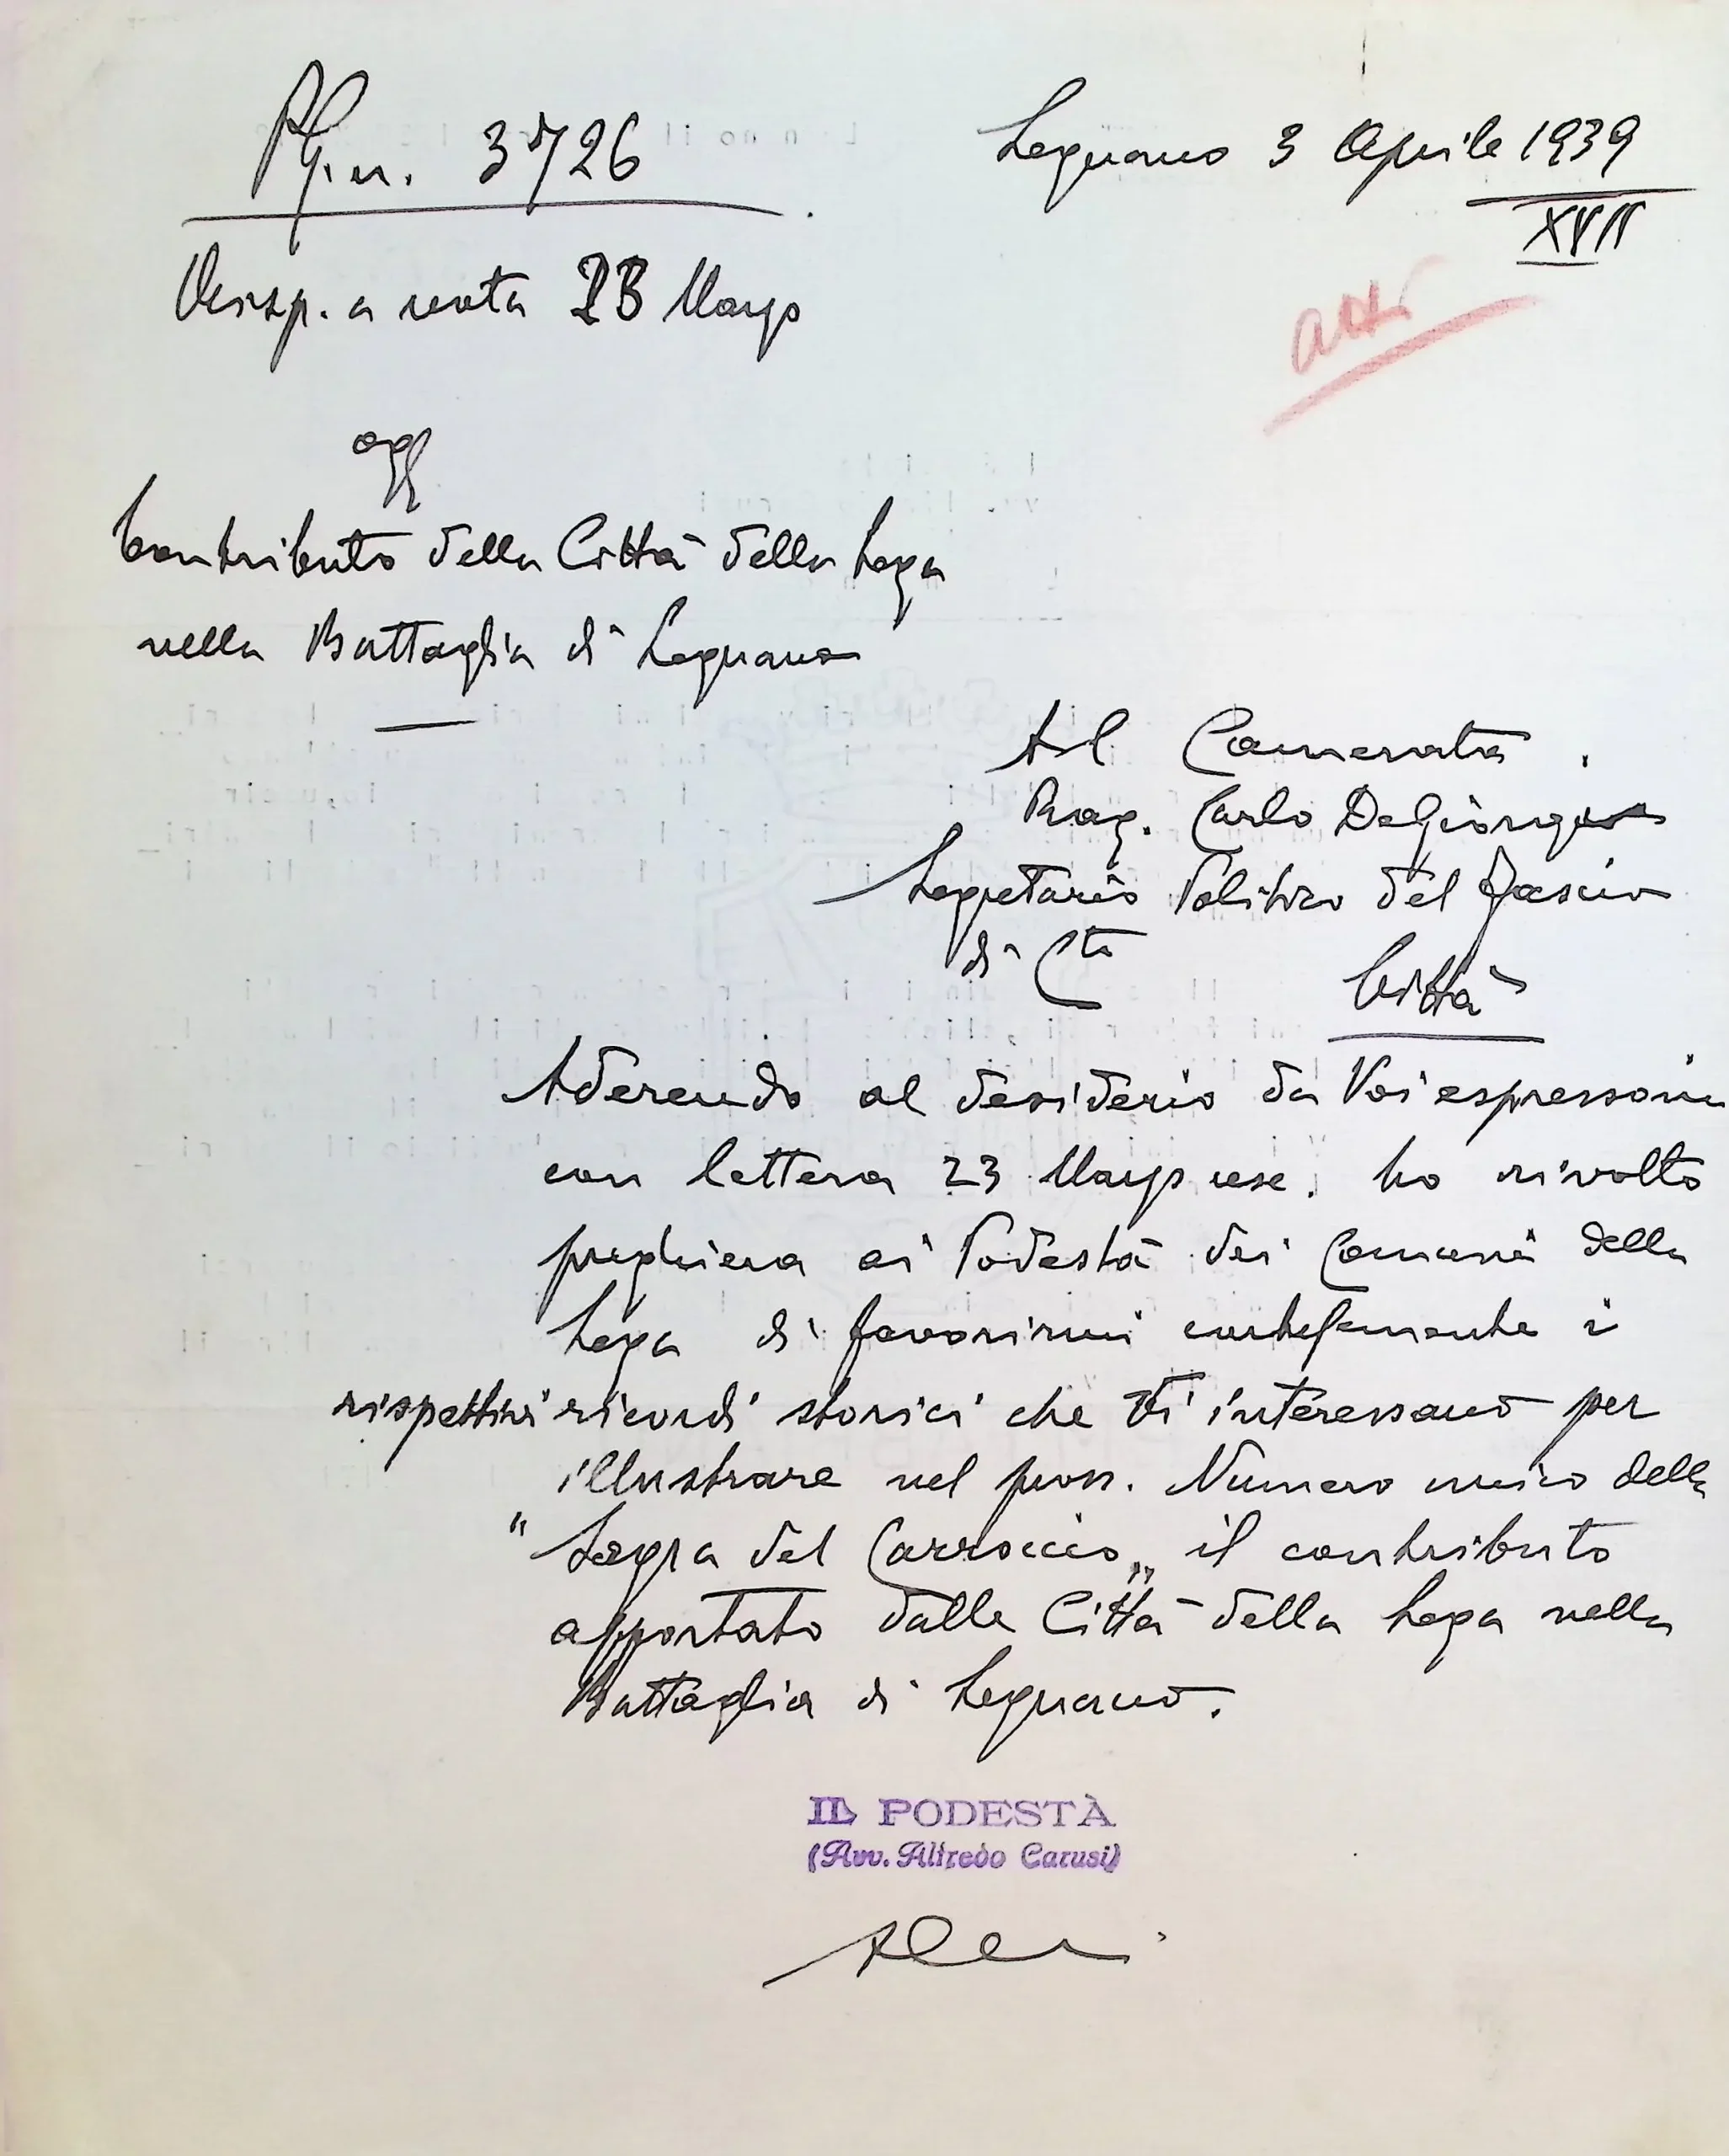 P.G. n. 3726
Legnano 3 Aprile 1939
XVII
Risp. a nota 23 Marzo
atti
ogg
Contributo della Città della Lega
nella Battaglia di Legnano
Al Camerata
Rag. Carlo DeGiorgi
Segretario Politico del Fascio
di Ctto
Città
Aderendo al desiderio da Voi espressomi
con lettera 23 Marzo usc. ho rivolto
preghiera ai Podestà dei Comuni della
Lega di favorirmi cortesemente i
rispettivi ricordi storici che Vi interessano per
illustrare nel pross. Numero unico della
"Sagra del Carroccio" il contributo
apportato dalle Città della Lega nella
Battaglia di Legnano.
IL PODESTÀ
(Avv. Alfredo Carusi)